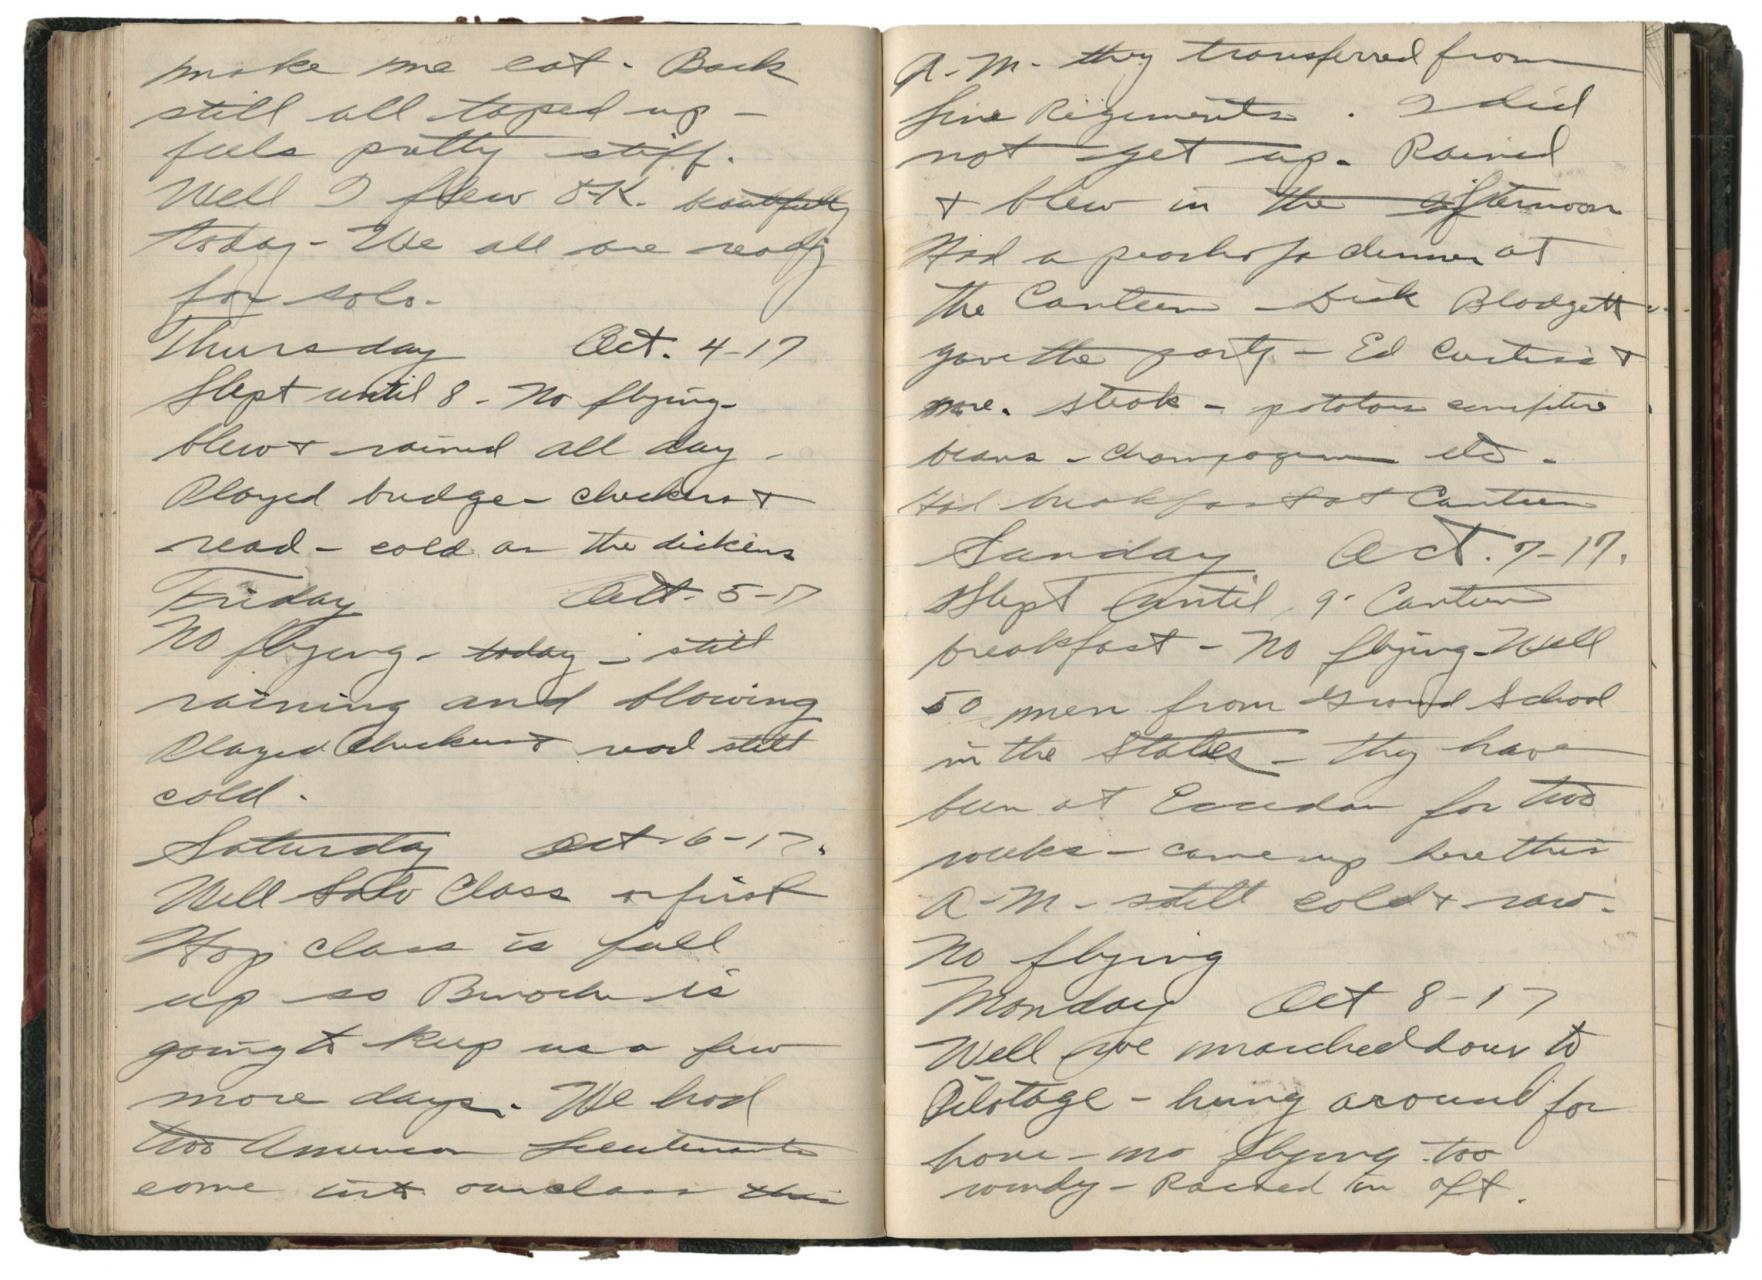 make me eat - Back
still all taped up -
feels pretty stiff.
Well I flew O-K. beautifully
today - We all are ready
for solo -
Thursday Oct. 4-17
Slept until 8 - No flying -
blew & rained all day -
Played bridge - checkers &
read - cold as the dickens
Friday Oct. 5-17
No flying - today - still
raining and blowing
Played checkers & read still
cold.
Saturday Oct 6-17.
Well Solo Class or first
Hop class is full
up so is
going to keep us a few
more days. We had
two American Lieutenants
come into our class this
A.M. they transferred from
line Regiments. I did
not get up. Rained
& blew in the afternoon
Had a dinner at
the Canteen - Dick Blodgett
gave the party - Ed Curtiss &
me. steak - potatoes confiture
beans - champagne etc -
Had breakfast at Canteen
Sunday Oct. 7-17.
Slept until 9. Canteen
breakfast - No flying - Well
50 men from Ground School
in the States - they have
been at for two
weeks - came up here this
A-M - still cold & raw.
No flying
Monday Oct 8-17
Well we marched down to
Pilotage - hung around for
hour - no flying too
windy - Rained in aft.